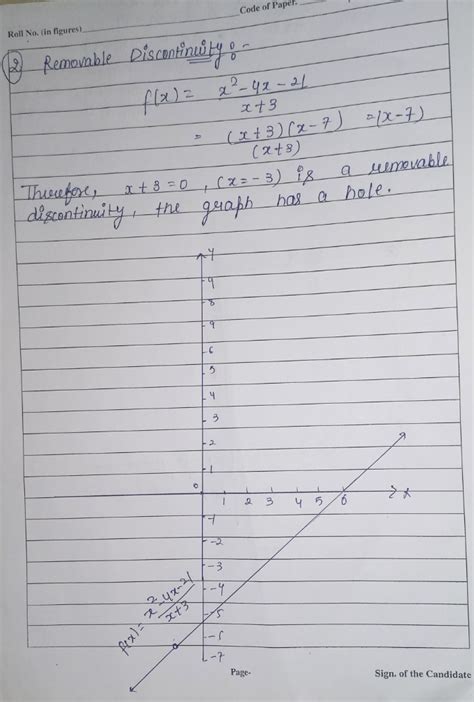 Code of Paper.
Roll No. (in figures)
(2) Removable Discontinuity :-
f(x) = x² - 4x - 21 / x + 3
= (x+3)(x-7) / (x+3) = (x-7)
Therefore, x+3=0, (x=-3) is a removable
discontinuity, the graph has a hole.
y
9
8
9
6
5
4
3
2
1
0 1 2 3 4 5 6 x
-1
-2
-3
-4
-5
-6
-7
f(x) = x² - 4x - 21 / x + 3
Page-
Sign. of the Candidate